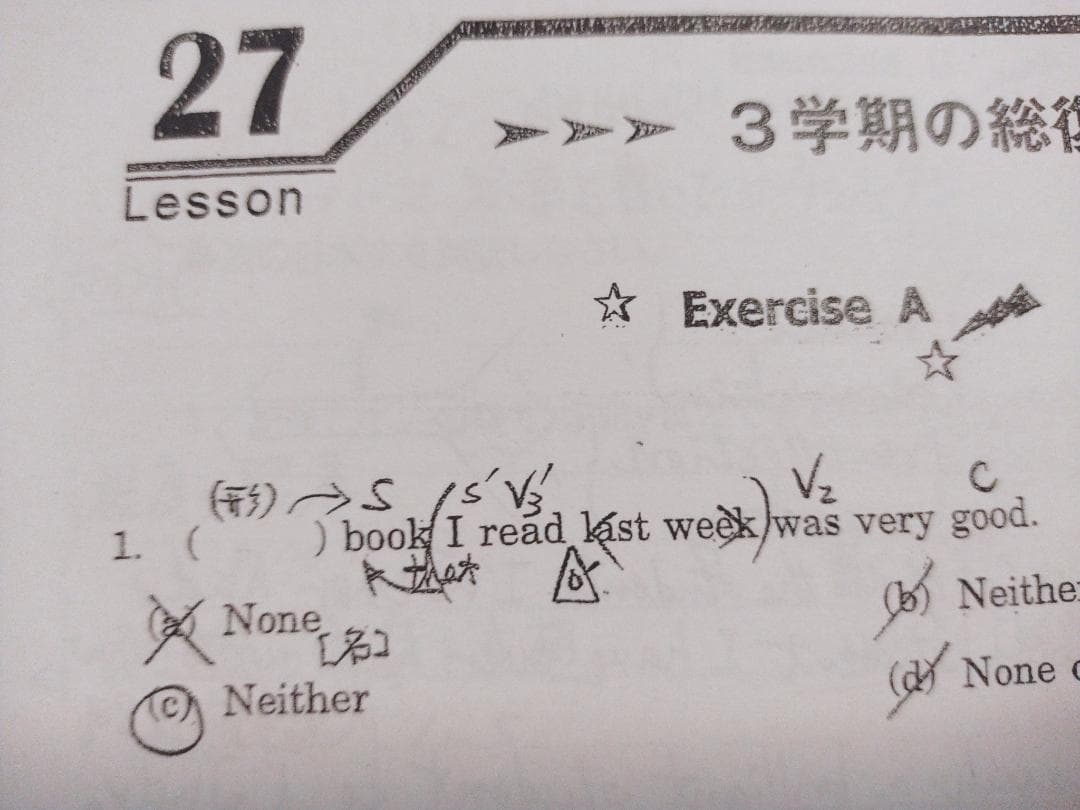 27
Lesson
3学期の総復
☆ Exercise A
☆
(形) → S ( S' V₃' ) V₂ C
1. ( ) book I read last week was very good.
that
(a) None (b) Neither
[名]
(c) Neither (d) None o